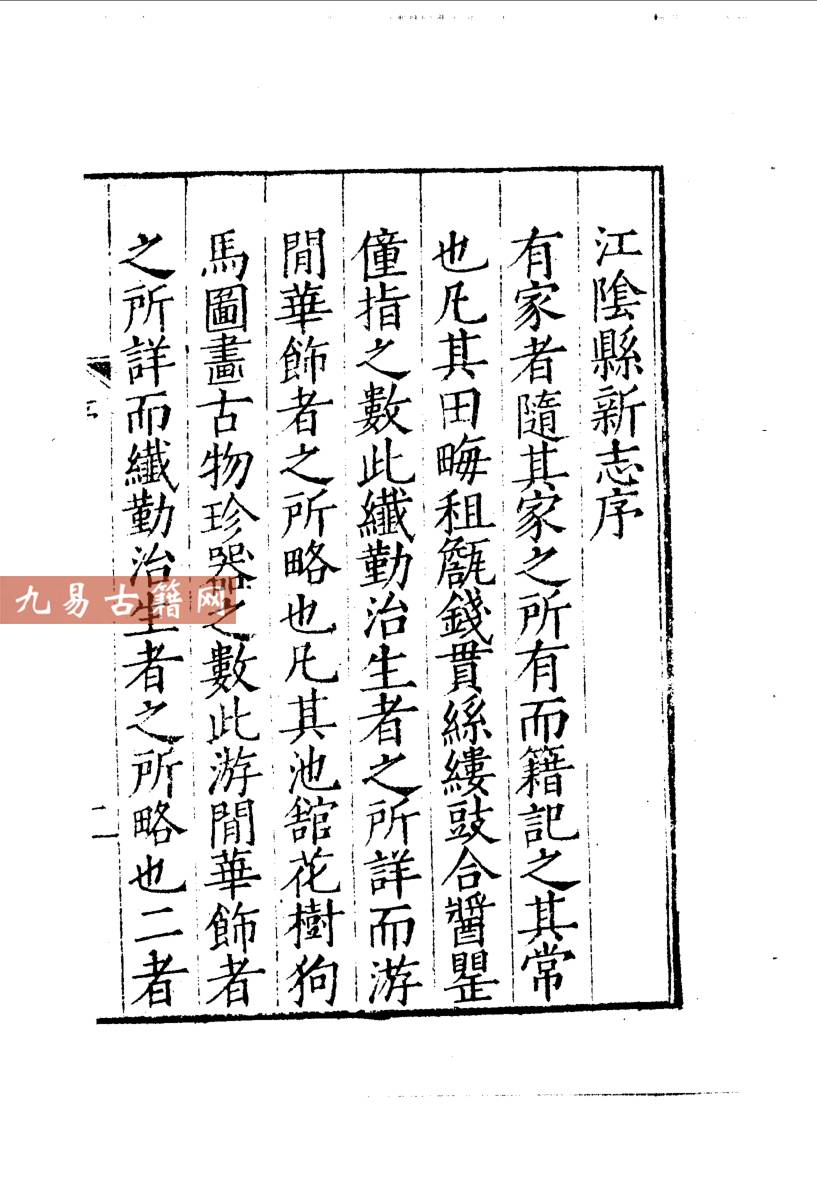 江陰縣新志序
有家者隨其家之所有而籍記之其常
也凡其田畮租甔錢貫絲縷豉合醬瞿
僮指之數此纖勤治生者之所詳而游
閒華飾者之所略也凡其池舘花樹狗
馬圖畵古物珍器之數此游閒華飾者
之所詳而纖勤治生者之所略也二者
二
九易古籍网